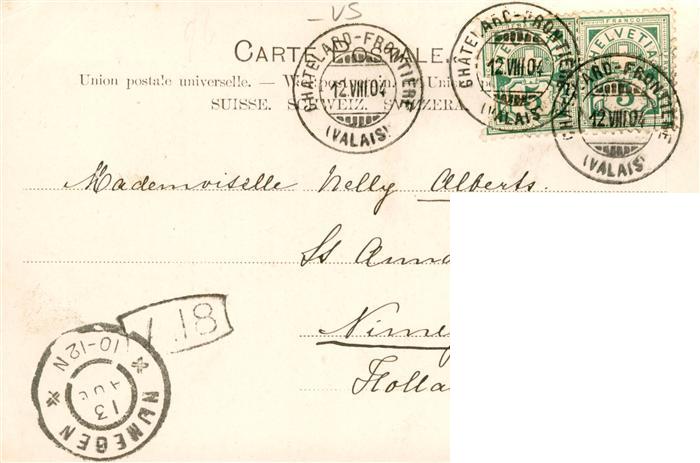 VS
CARTE POSTALE.
Union postale universelle. —
SUISSE. SCHWEIZ. SVIZZERA.
CHÂTELARD-FRONTIÈRE
12.VIII.04
(VALAIS)
CHÂTELARD-FRONTIÈRE
12.VIII.04
(VALAIS)
CHÂTELARD-FRONTIÈRE
12.VIII.04
(VALAIS)
FRANCO
HELVETIA
5
5
Mademoiselle Nelly Alberts.
St Anna
Nime
Holla
18
NIJMEGEN
13
AUG
10-12N